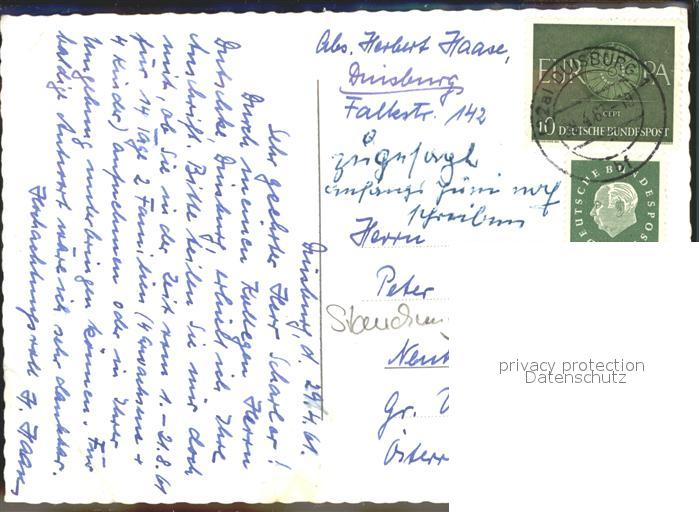 Duisburg, d. 29/4.61.
Sehr geehrter Herr Scharler!
Durch meinen Kollegen Herrn
Dutschke, Duisburg, erhielt ich Ihre
Anschrift. Bitte teilen Sie mir doch
mit, ob Sie in der Zeit vom 1.-21.8.61
für 14 Tage 2 Familien (4 Erwachsene +
4 Kinder) aufnehmen oder in Ihrer
Umgebung unterbringen können. Für
baldige Antwort wäre ich sehr dankbar.
Hochachtungsvoll H. Haase
Abs. Herbert Haase,
Duisburg
Falkstr. 142
zugesagt
anfangs Juni noch
schreiben
Herrn
Peter
Neu
Gr.
Österr
EUROPA
CEPT
10 DEUTSCHE BUNDESPOST
DUISBURG
DEUTSCHE BUNDESPOST
privacy protection
Datenschutz